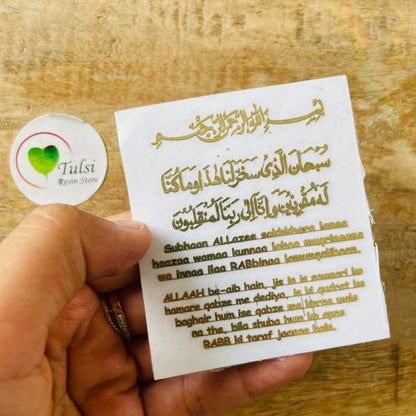 Tulsi
Resin Store
بسم الله الرحمن الرحيم
سُبْحَانَ الَّذِى سَخَّرَ لَنَا هٰذَا وَمَا كُنَّا
لَهُ مُقْرِنِيْنَ وَاِنَّا اِلٰى رَبِّنَا لَمُنْقَلِبُوْنَ
Subhaan ALLazee sakhkhara lanaa
haazaa wamaa kunnaa lahoo muqrineena
wa innaa ilaa RABbinaa lamunqaliboon.
ALLAAH be-aib hain, jis ne is sawari ko
hamare qabze me dediya, is ki qudrat ke
baghair hum ise qabze me karne wale
na the, bila shuba hum ko apne
RABB ki taraf jaanna hain.